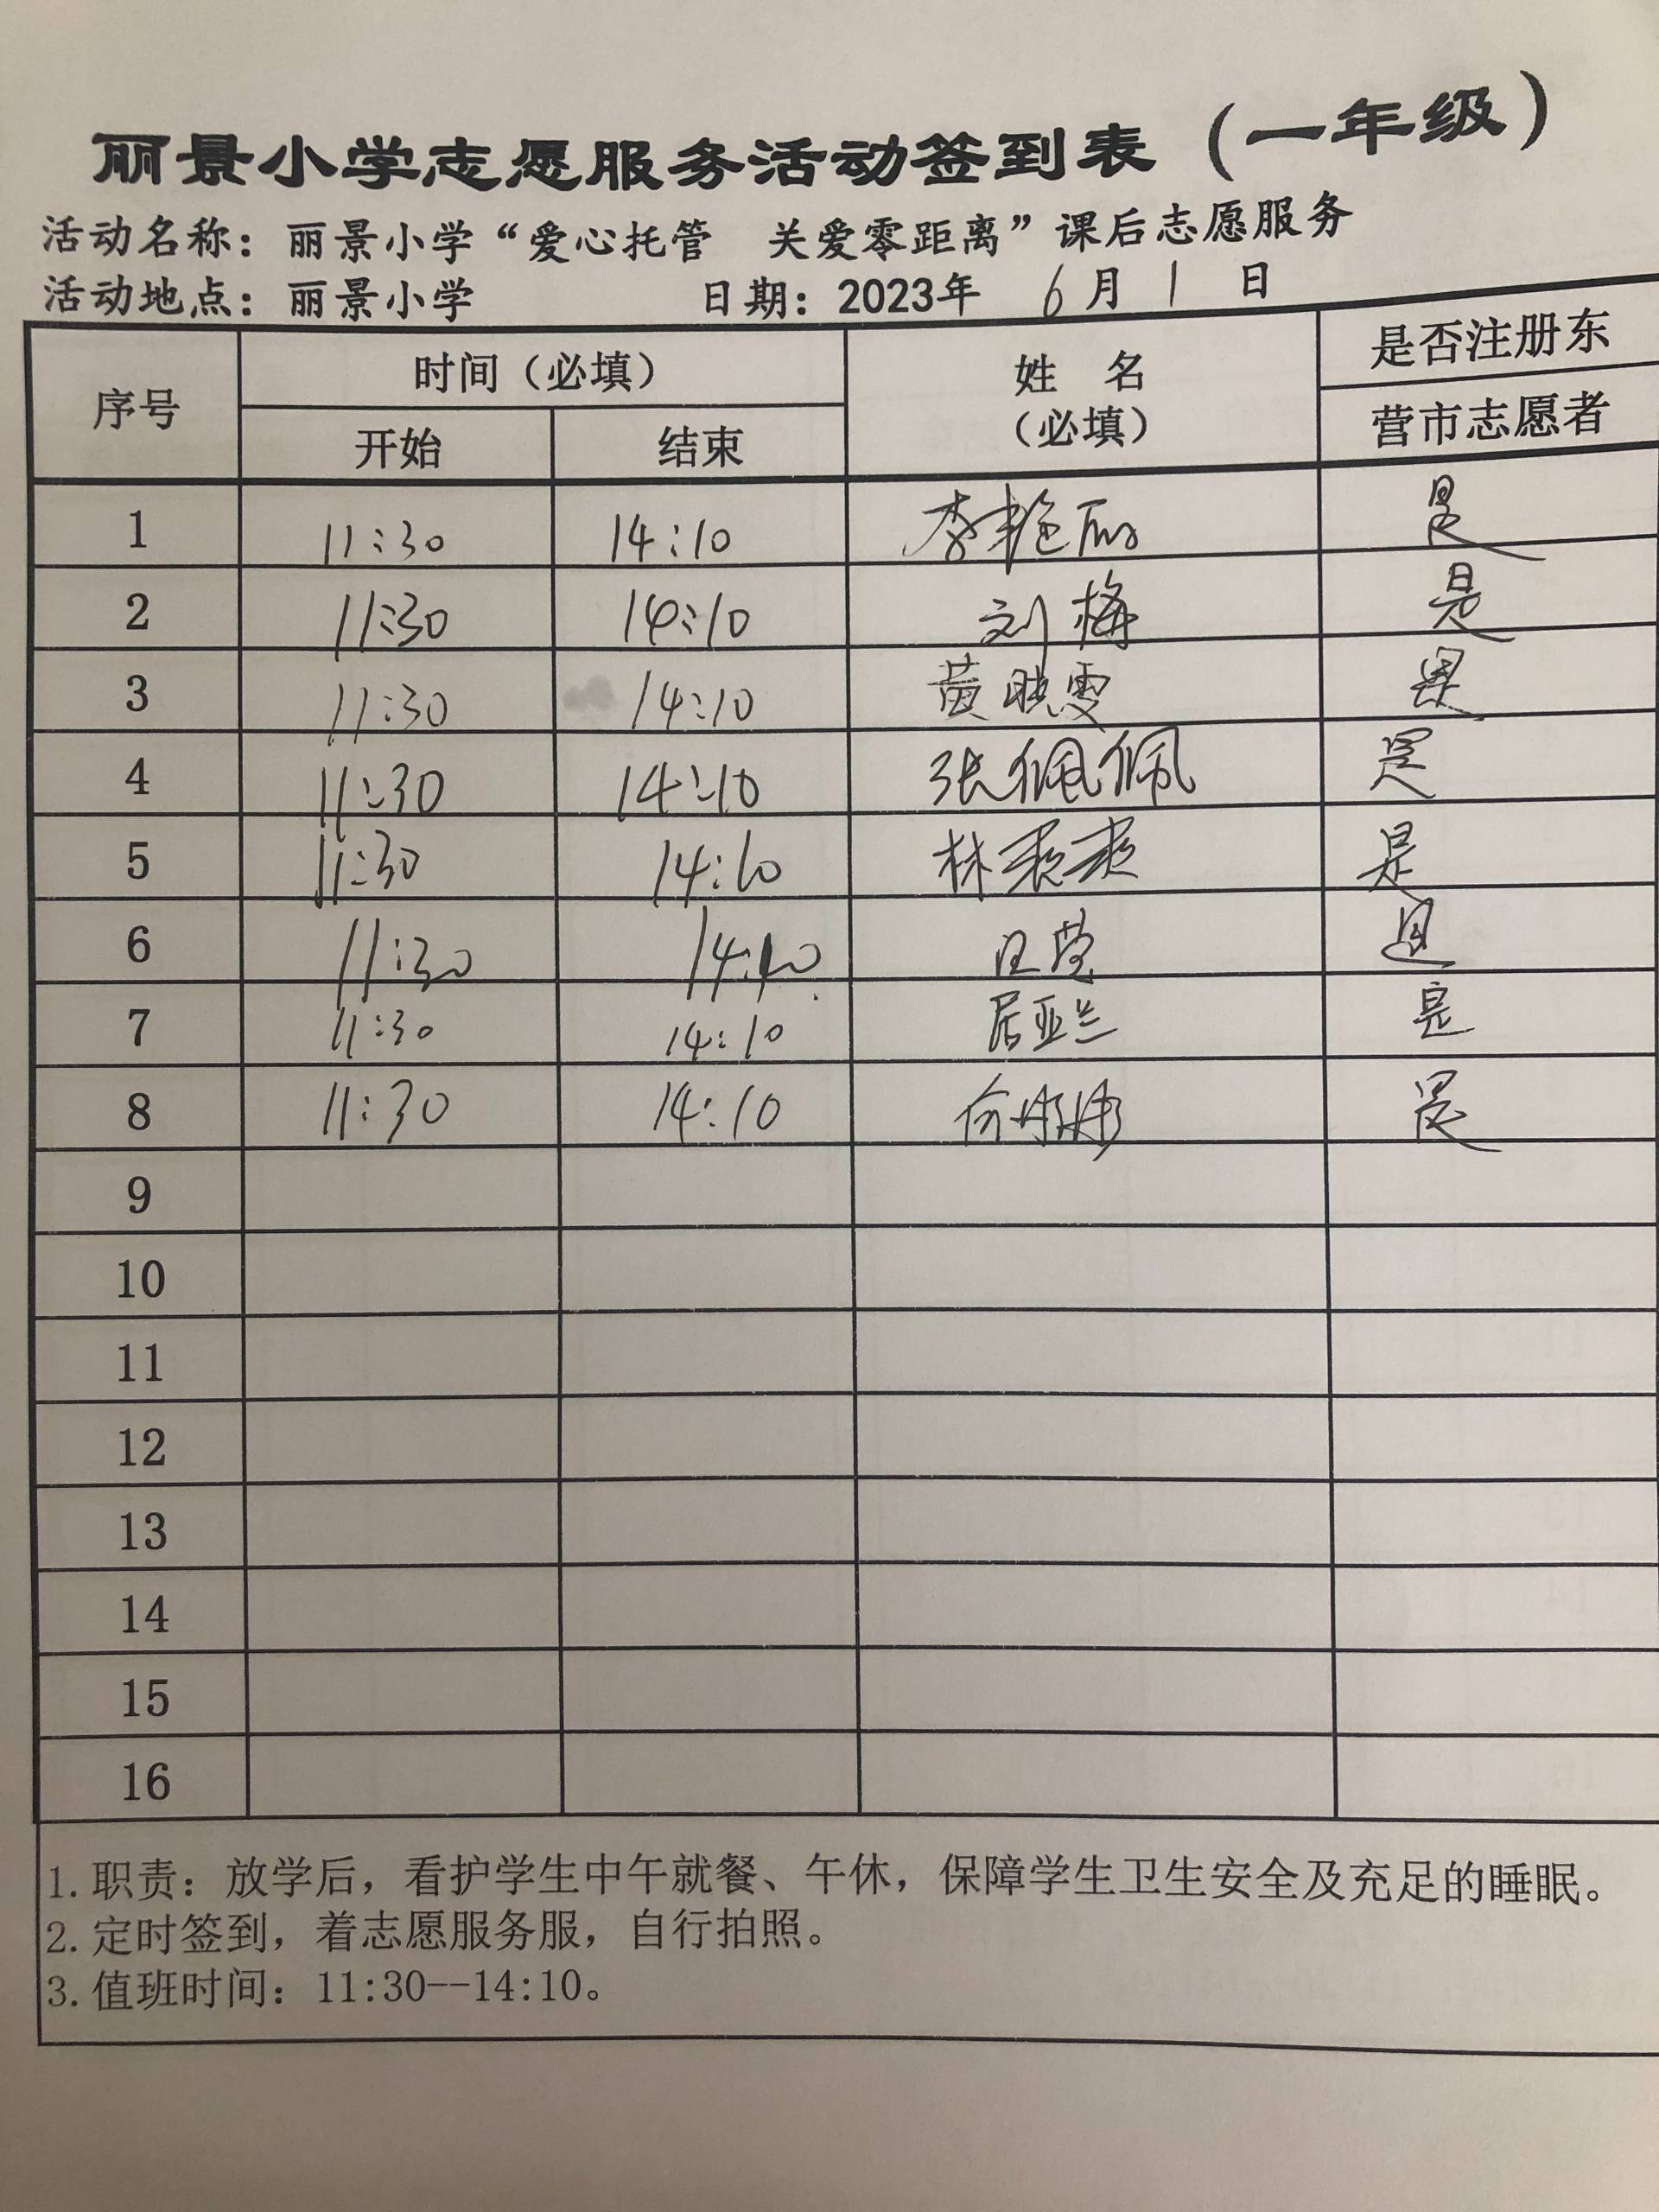 丽景小学志愿服务活动签到表（一年级）
活动名称：丽景小学“爱心托管 关爱零距离”课后志愿服务
活动地点：丽景小学 日期：2023年 6月 1 日
序号 时间（必填） 姓 名（必填） 是否注册东营市志愿者
开始 结束
1 11:30 14:10 李艳丽 是
2 11:30 14:10 刘梅 是
3 11:30 14:10 黄晓雯 是
4 11:30 14:10 张佩佩 是
5 11:30 14:10 林 是
6 11:30 14:10 是
7 11:30 14:10 居亚兰 是
8 11:30 14:10 是
9
10
11
12
13
14
15
16
1.职责：放学后，看护学生中午就餐、午休，保障学生卫生安全及充足的睡眠。
2.定时签到，着志愿服务服，自行拍照。
3.值班时间：11:30--14:10。